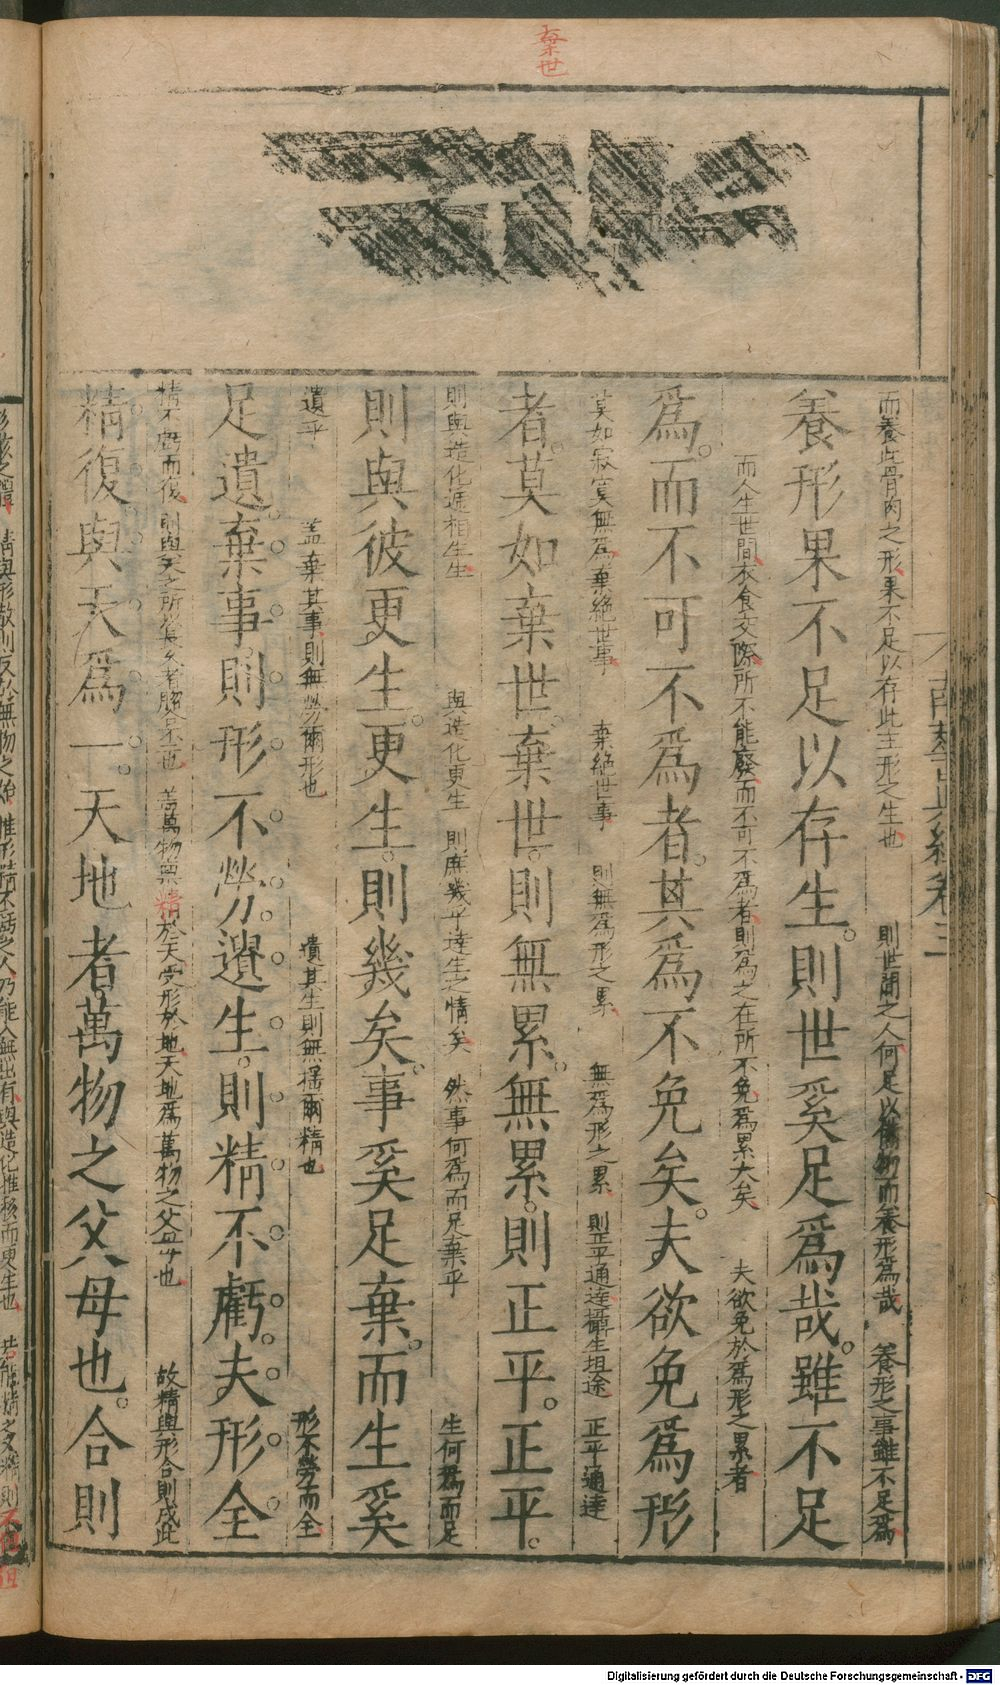 棄世
而養此骨肉之形果不足以存此主形之生也 則世間之人何足以備物而養形爲哉 養形之事雖不足爲
養形果不足以存生則世奚足爲哉雖不足
而人生世間衣食交際所不能廢而不可不爲者則爲之在所不免爲累大矣 夫欲免於爲形之累者
爲而不可不爲者其爲不免矣夫欲免爲形
莫如寂寞無爲棄絶世事 棄絶世事 則無爲形之累 無爲形之累 則正平通達攝生坦途 正平通達
者莫如棄世棄世則無累無累則正平正平
則與造化遞相生生 與造化更生 則庶幾乎達生之情矣 然事何爲而足棄乎 生何爲而足
則與彼更生更生則幾矣事奚足棄而生奚
遺乎 盖棄其事則無勞爾形也 遺其生則無搖爾精也 形不勞而全
足遺棄事則形不勞遺生則精不虧夫形全
精不虧而復 則與天之所 善萬物禀精於天受形於地天地爲萬物之父母也 故精與形合則成此
精復與天爲一天地者萬物之父母也合則
卷三
Digitalisierung gefördert durch die Deutsche Forschungsgemeinschaft - DFG